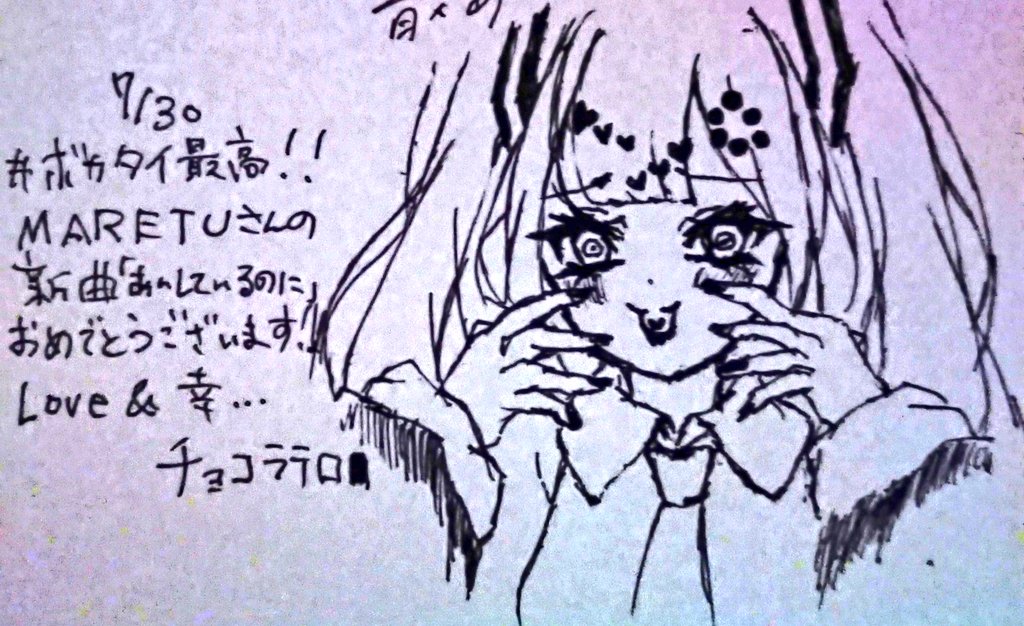 7/30
#ボカタイ最高!!
MARETUさんの
新曲「あいしているのに」
おめでとうございます!
Love & 幸…
チョコラテロ